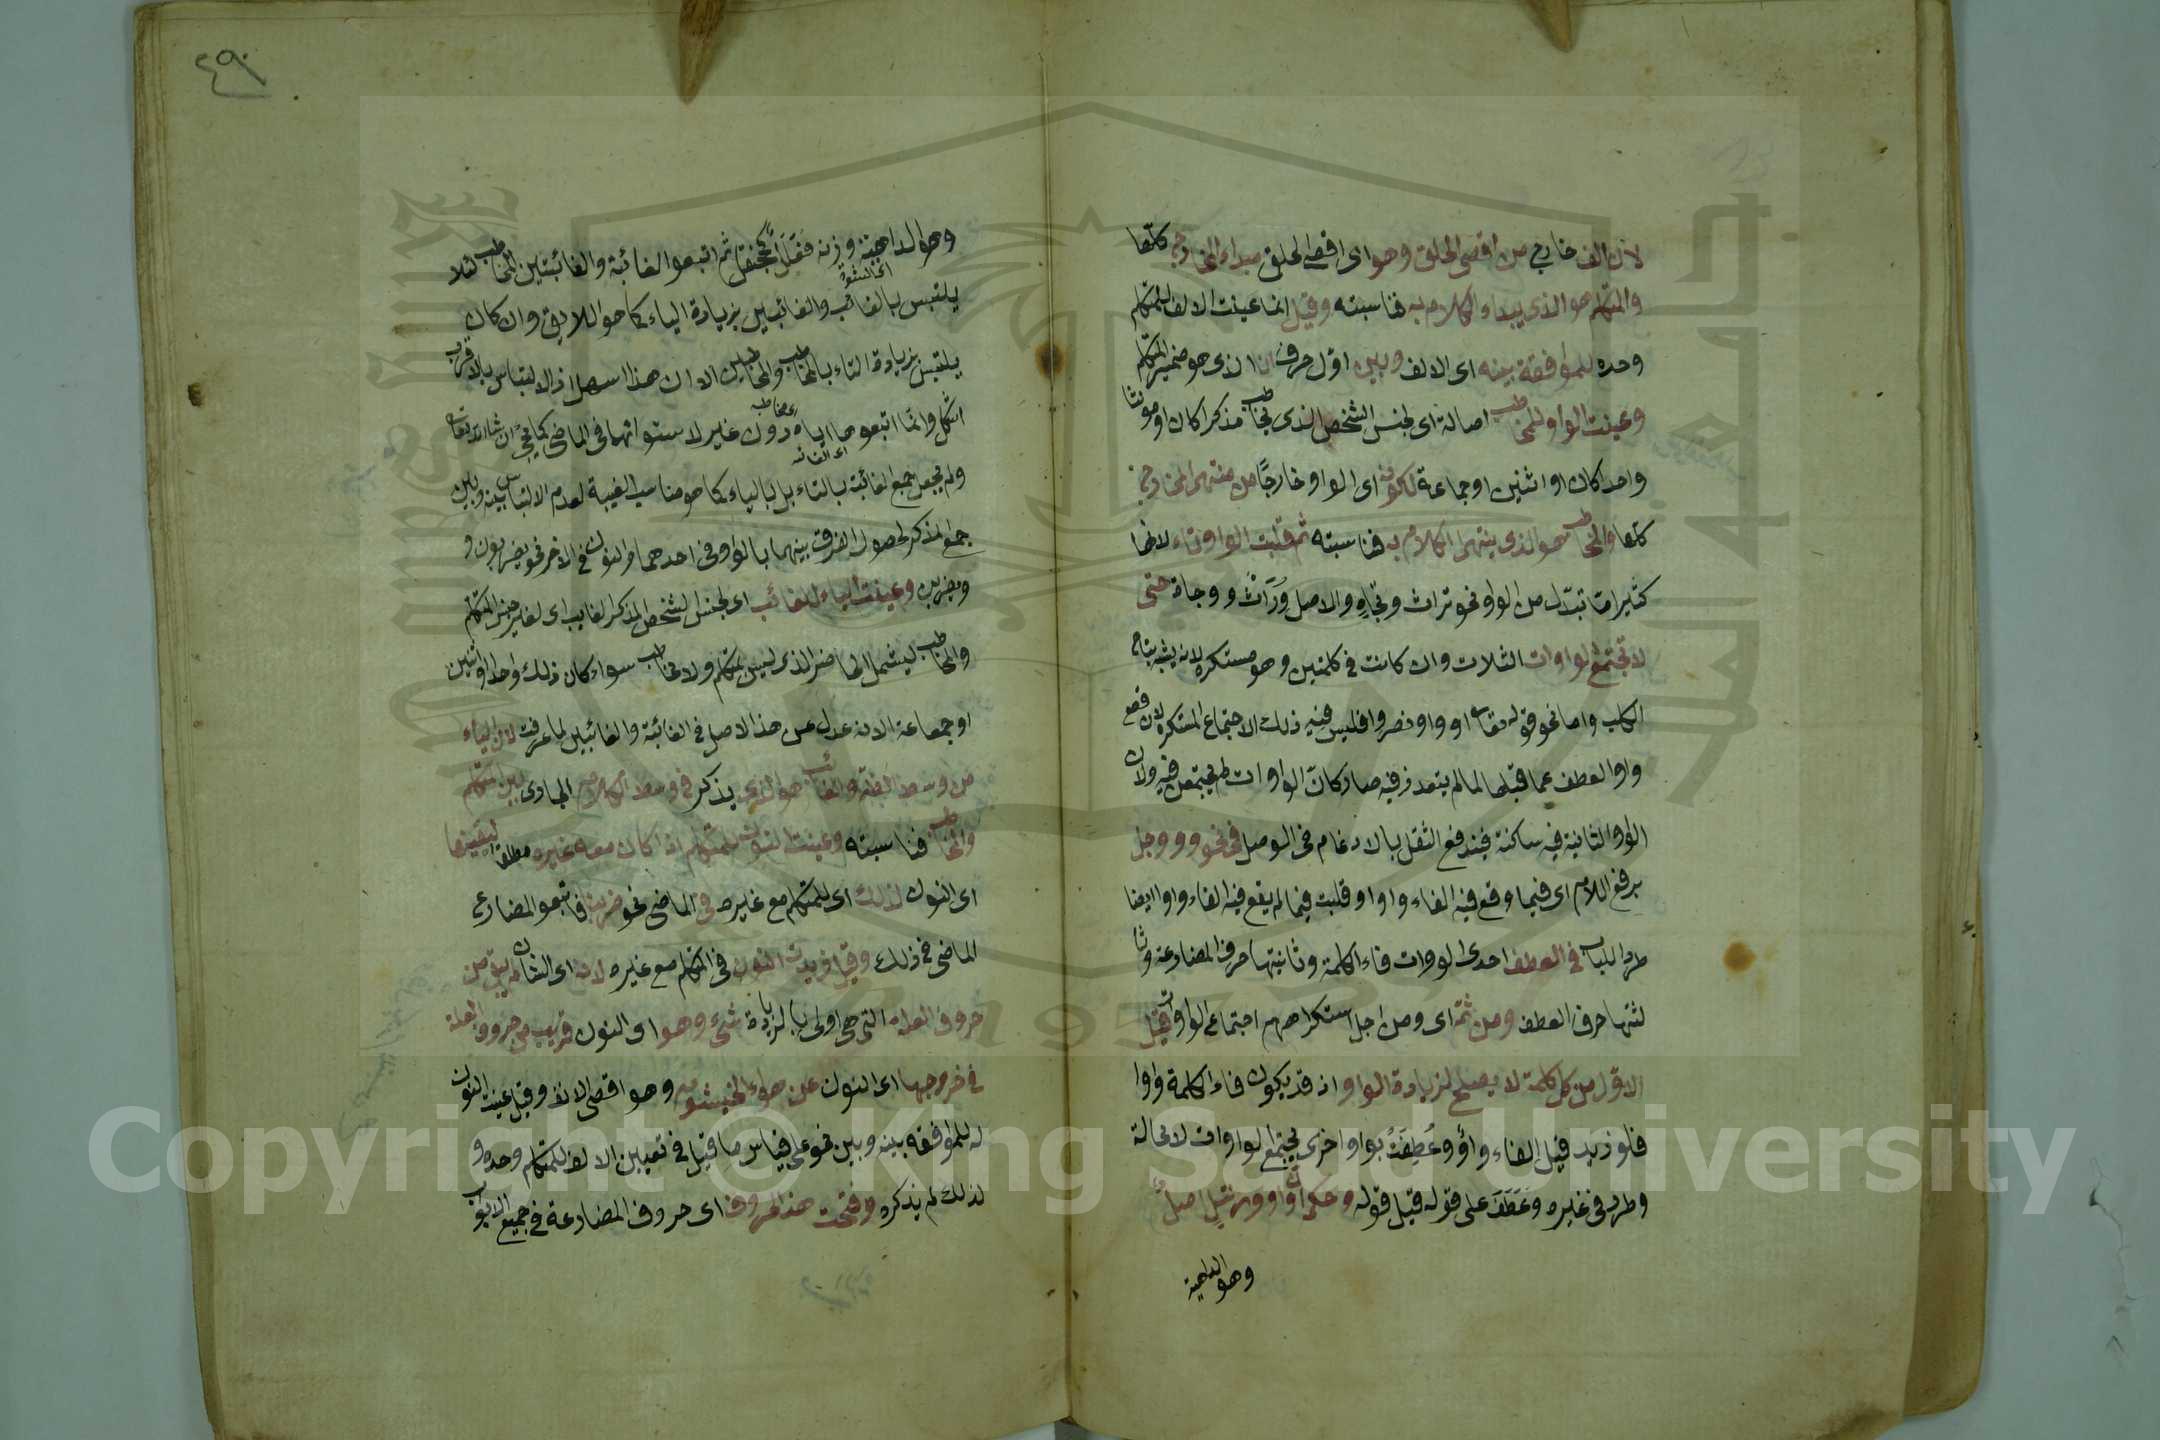 لان الالف خارج من اقصى الحلق وهو اى اقصى الحلق مبداء المخارج كلها
والمتكلم هو الذى يبداء الكلام به فناسبته وقيل انما عينت الالف للمتكلم
وحده للموافقة بينه اى الالف وبين اول حرف انا الذى هو ضمير المتكلم
وعينت الواو للمخاطب اصالة اى لجنس الشخص الذى يخاطب مذكرا كان او مونثا
واحدا كان او اثنين او جماعة لكونه اى الواو خارجًا من منتهى المخارج
كلها والمخاطب هو الذى ينتهى الكلام به فناسبته ثم قلبت الواو تاء لانها
كثيرا ما تبدل من الواو نحو تراث وتجاه والاصل وُرَاث و وجاه حتى
لا تجتمع الواوات الثلاث وان كانت فى كلمتين وهو مستكره لانه يشبه نباح
الكلب واما نحو قوله تعالى اووا ونصروا فليس فيه ذلك الاجتماع المستكره لان قطع
واو العطف عما قبلها لما لم يتعذر فيه صار كانّ الواوات لم يجتمعن فيه ولان
الواو الثانية فيه ساكنة فيندفع الثقل بالادغام فى الوصل فى نحو ووجل
برفع اللام اى فيما وقع فيه الفاء واوا وقلبت فيما لم يقع فيه الفاء واوا ايضا
طردا للباب فى العطف احدى الواوات فاء الكلمة وثانيتها حرف المضارعة وثا
لثتها حرف العطف ومن ثمة اى ومن اجل استكراههم اجتماع الواوات قيل
الاول من كل كلمة لا يصلح لزيادة الواو اذ قد يكون فاء الكلمة واوا
فلو زيد قبل الفاء واوٌ وعُطِفَتْ بواو اخرى يجتمع الواوات لا محالة
وطرد فى غيره وعَطَفَ على قوله قيل قوله وحكم ان واو ورنتل اصل
وهو الداهية
٤٩
وهو الداهية وزنه فَعَنْلَل كجحنفل ثم اتبعوا الغائبة والغائبتين المخاطب لئلا
اى المؤنثة
يلتبس بالغائب والغائبين بزيادة الياء كما هو اللايق وان كان
يلتبس بزيادة التاء بالمخاطب والمخاطبين الا ان هذا اسهل اذ الالتباس بالاقرب
اشكل وانما اتبعوهما اياه دون غير لاستوائهما فى الماضى كما يجئ ان شاء الله تعالى
مخاطبه
اى الغائبه
ولم يجعل جمع الغائبة بالتاء بل بالياء كما هو مناسب الغيبة لعدم الالتباس بينه وبين
جمع المذكر لحصول الفرق بينهما بالواو فى احدهما والنون فى الاخر نحو يضربون و
ويضربن وعينت الياء للغائب اى لجنس الشخص المذكر الغايب اى لغير جنس المتكلم
والمخاطب ليشمل الحاضر الذى ليس بمتكلم ولا مخاطب سواء كان ذلك واحدا او اثنين
او جماعة الا انه عدل عن هذا الاصل فى الغائبة والغائبتين لما عرفت لان الياء
من وسط الفم والغائب هو الذى يذكر فى وسط الكلام الجارى بين متكلم
والمخاطب فناسبته وعينت النون للمتكلم اذا كان معه غيره مطلقا لتعينها
اى النون لذلك اى للمتكلم مع غيره فى الماضى نحو ضربنا فاتبعوا المضارع
الماضى فى ذلك وقيل زيدت النون فى المتكلم مع غيره لانه اى الشان لم يبق من
حروف العلة التى هى اولى بالزيادة شئ وهو اى النون قريب من حروف العلة
فى خروجها اى النون عن هواء الخيشوم وهو اقصى الانف وقيل عينت النون
له للموافقة بينه وبين نحن على قياس ما قيل فى تعيين الالف للمتكلم وحده و
لذلك لم يذكره وفتحت هذه الحروف اى حروف المضارعة فى جميع الابواب
Copyright © King Saud University